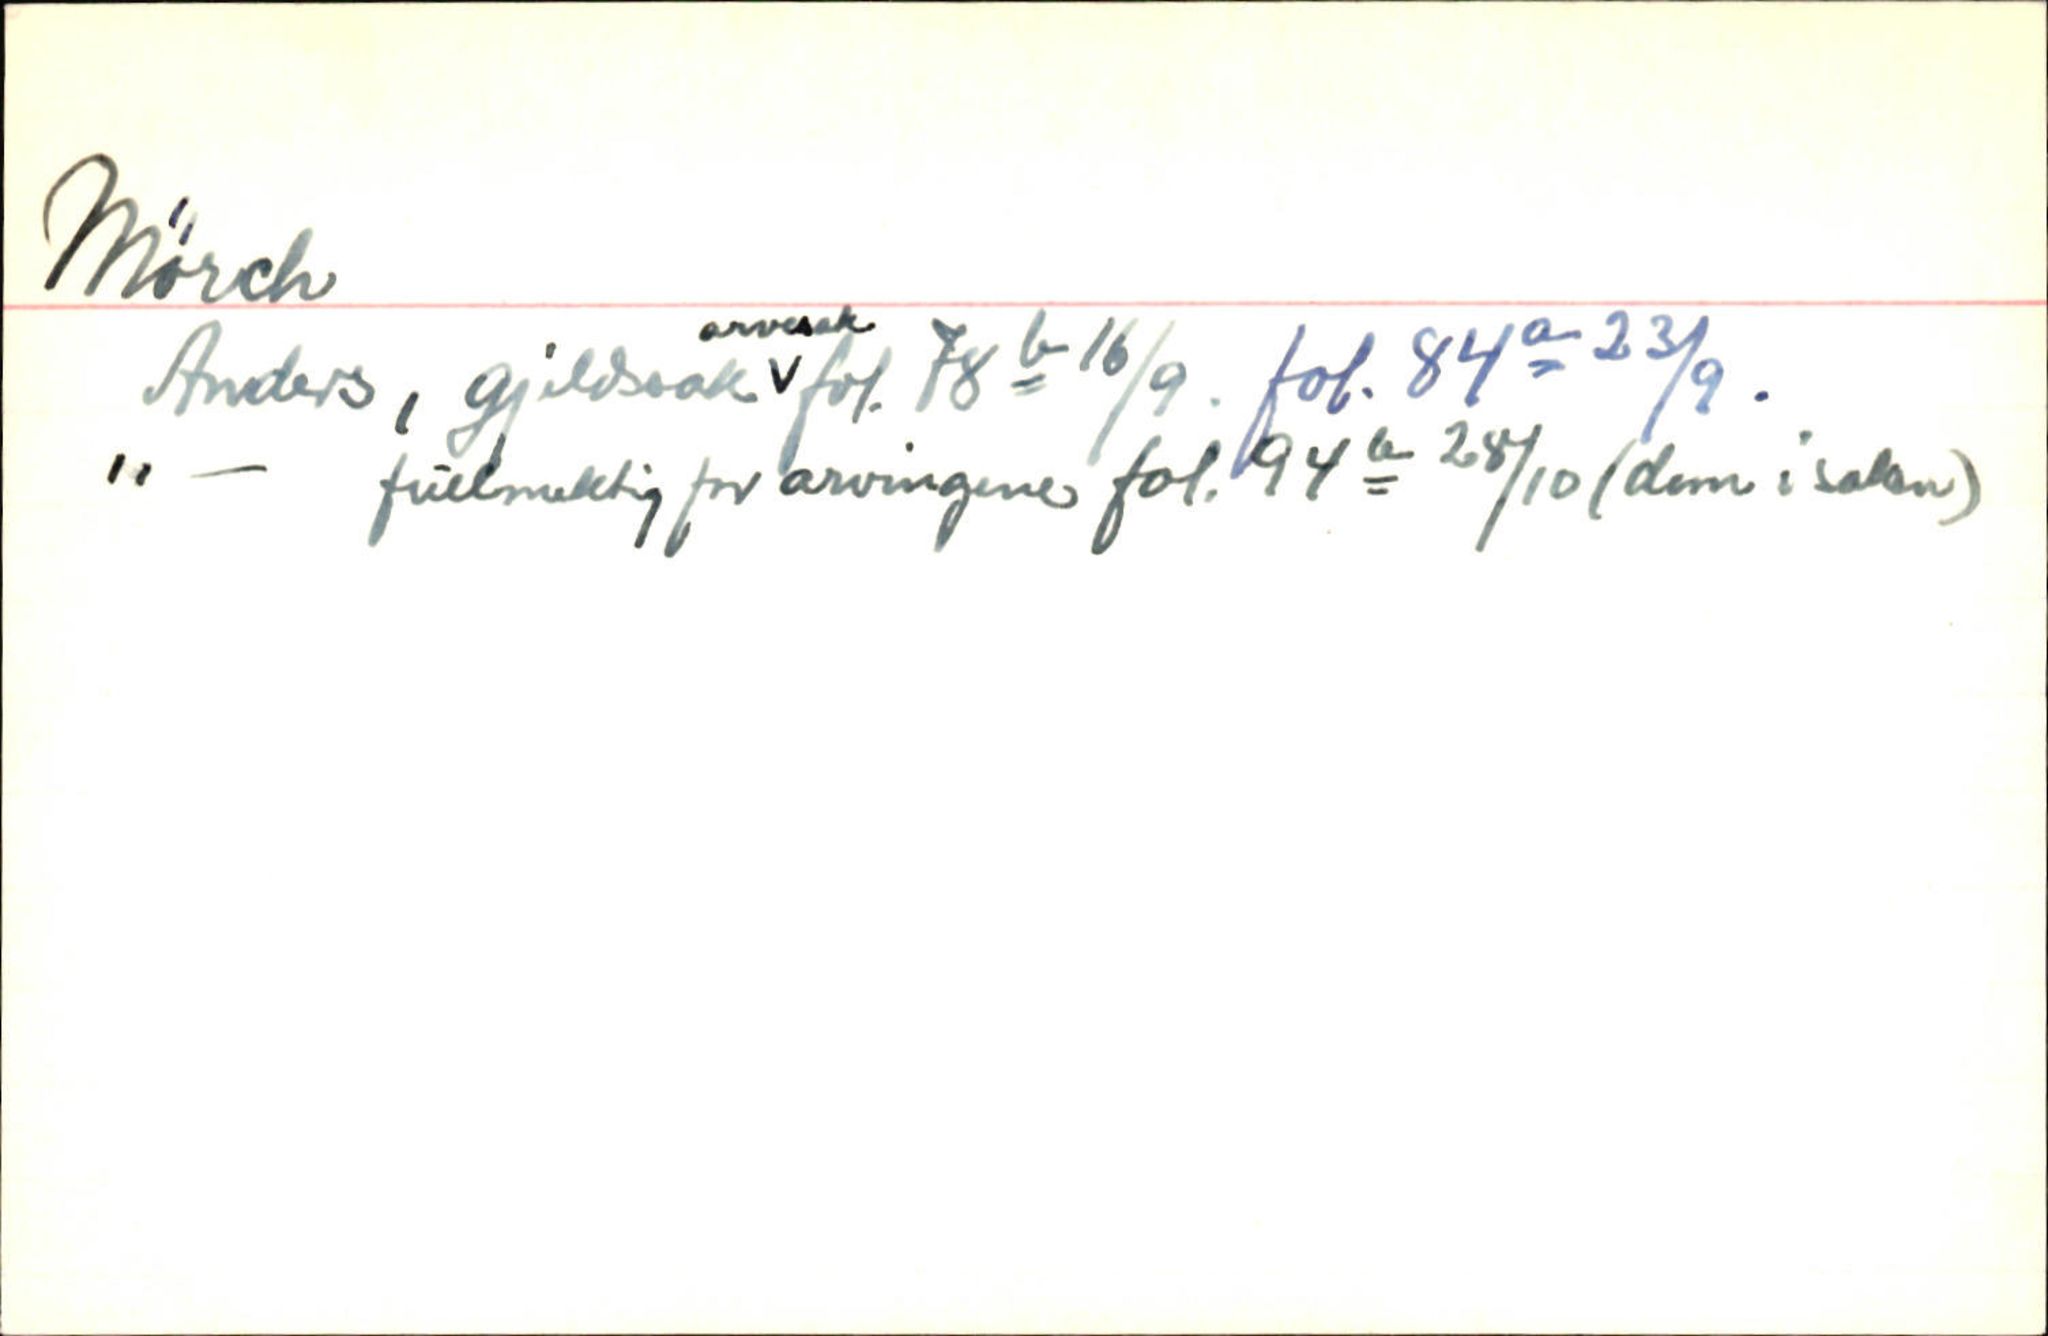 Mörch
Anders, gjeldssak ᵛ arvesak fol. 78 b 16/9. fol. 84 a 23/9.
" — fullmektig for arvingene fol. 94 b 28/10 (dom i saken)